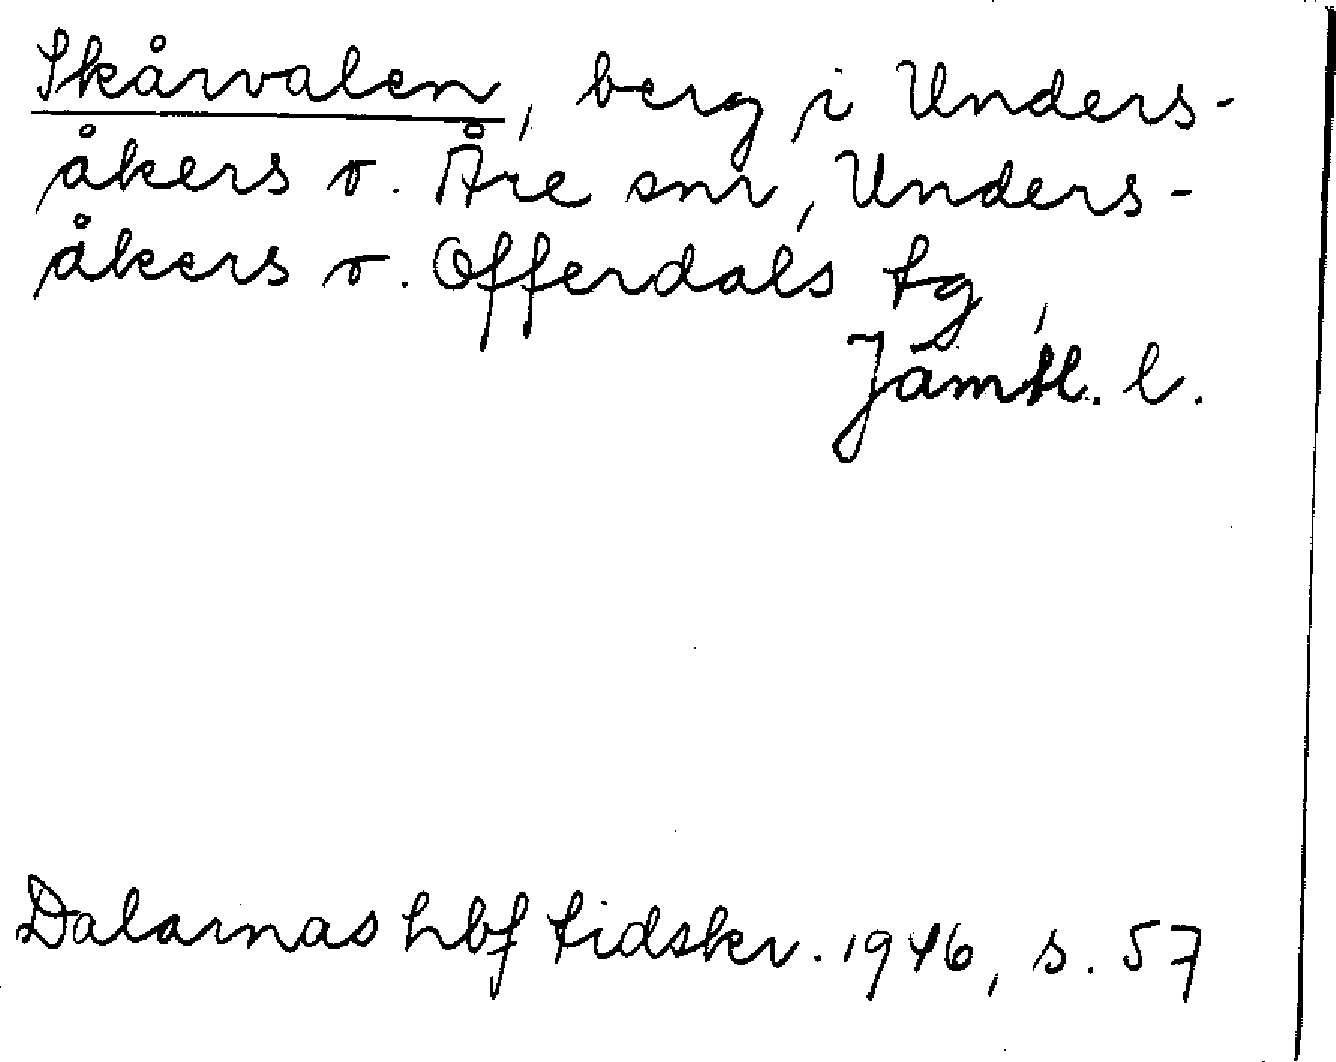 Skårvalen, berg i Unders-
åkers o. Åre snr, Unders-
åkers o. Offerdals tg,
Jämtl. l.
Dalarnas hbf tidskr. 1946, s. 57